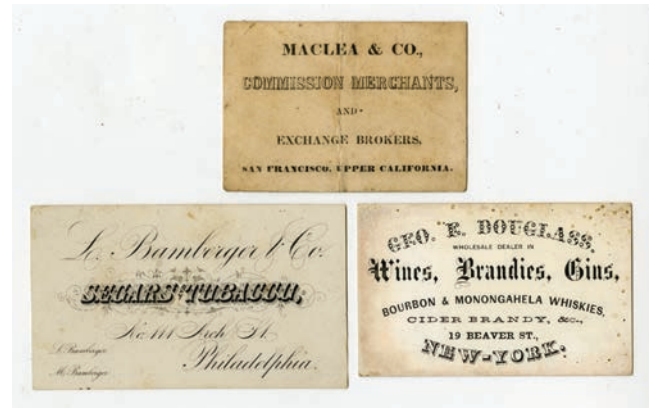 MACLEA & CO.,
COMMISSION MERCHANTS,
AND
EXCHANGE BROKERS,
SAN FRANCISCO, UPPER CALIFORNIA.
L. Bamberger & Co.
SEGARS & TOBACCO,
No. 111 Arch St.
Philadelphia.
L. Bamberger
M. Bamberger
GEO. E. DOUGLASS.
WHOLESALE DEALER IN
Wines, Brandies, Gins,
BOURBON & MONONGAHELA WHISKIES,
CIDER BRANDY, &c.,
19 BEAVER ST.,
NEW-YORK.